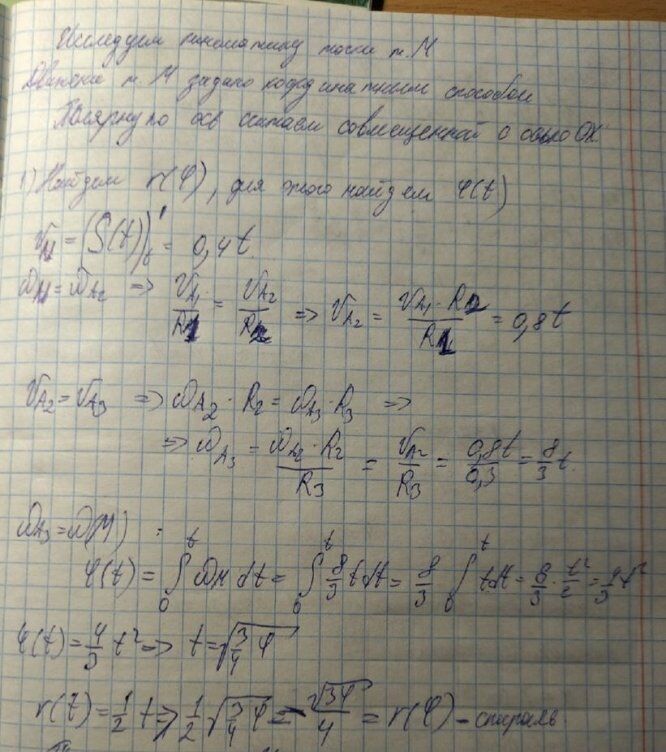 Исследуем кинематику точки т. М
Движение т. М задано координатным способом
Полярную ось считаем совмещенной с осью OX
1) Найдем r(φ), для этого найдем φ(t)
v_M = (S(t))'_t = 0,4t
ω_A1 = ω_A2 => v_A1/R1 = v_A2/R2 => v_A2 = (v_A1 · R2)/R1 = 0,8t
v_A2 = v_A3 => ω_A2 · R2 = ω_A3 · R3 =>
=> ω_A3 = (ω_A2 · R2)/R3 = v_A2/R3 = 0,8t/0,3 = 8/3 t.
ω_A3 = ω(M)
φ(t) = ∫₀ᵗ ω_M dt = ∫₀ᵗ 8/3 t dt = 8/3 ∫₀ᵗ t dt = 8/3 · t²/2 = 4/3 t²
φ(t) = 4/3 t² => t = √(3/4 φ)
r(t) = 1/2 t => 1/2 √(3/4 φ) = √(3φ)/4 = r(φ) – спираль.